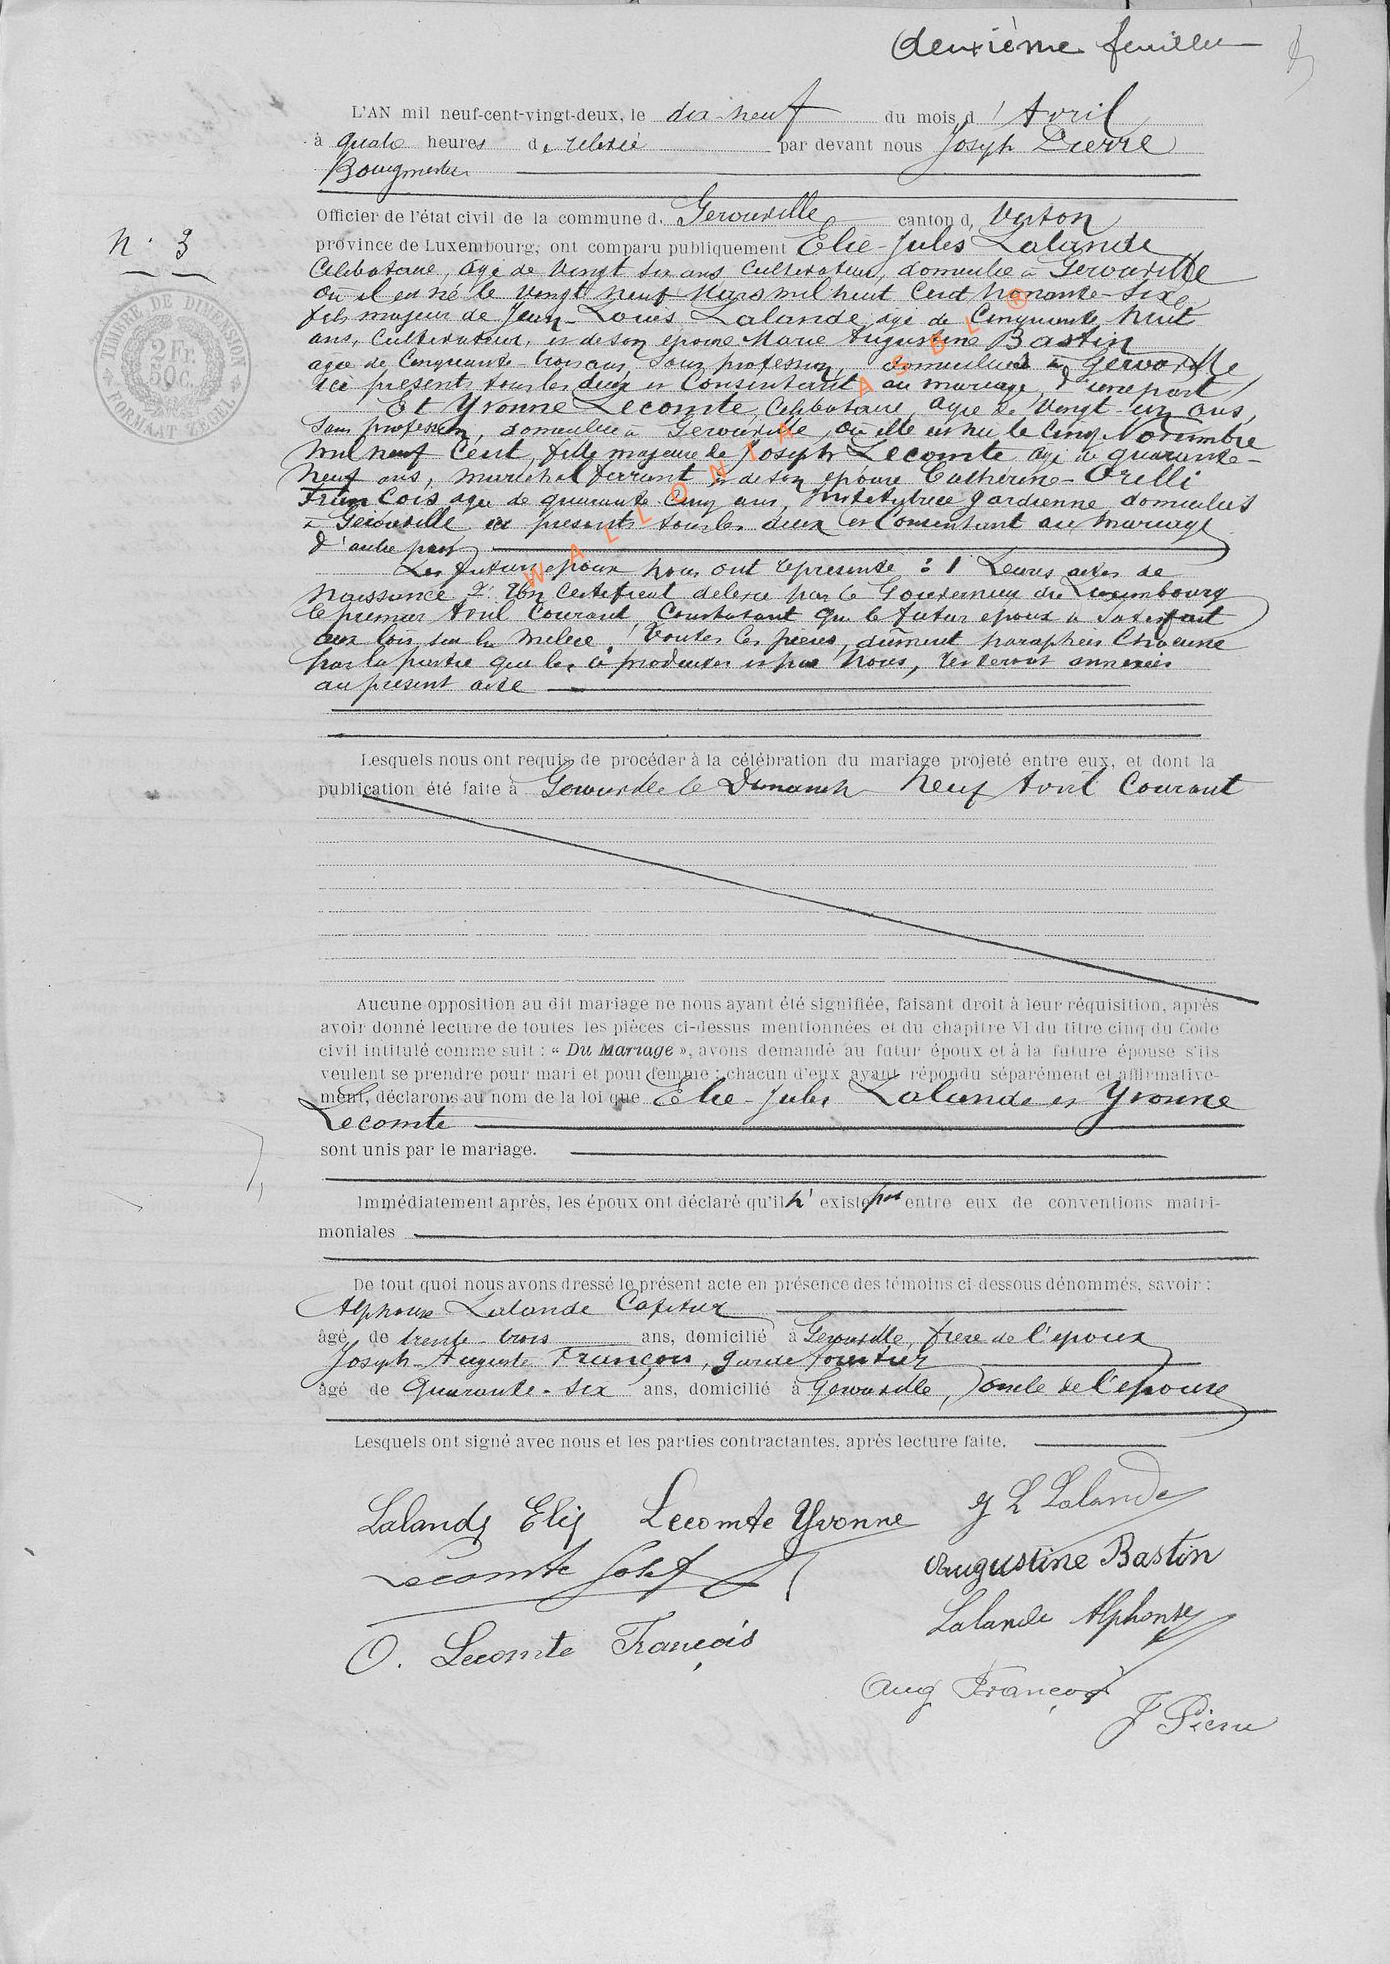 deuxième feuillet
L'AN mil neuf-cent-vingt-deux, le dix-neuf du mois d' Avril
à quatre heures de relevée par devant nous Joseph Pierre
Bourgmestre
Officier de l'état civil de la commune d. Gerouville canton d. Virton
N° 3
province de Luxembourg, ont comparu publiquement Elie-Jules Lalande
Célibataire, âgé de vingt six ans Cultivateur, domicilié à Gerouville
où il est né le vingt neuf Mars mil huit Cent nonante-six,
fils majeur de Jean-Louis Lalande, âgé de Cinquante huit
ans, Cultivateur, et de son épouse Marie Augustine Bastin
agée de Cinquante trois ans, sans profession, domiciliés à Gerouville,
ici présents tous les deux et Consentant au mariage, d'une part,
Et Yvonne Lecomte, Célibataire, agée de Vingt-un ans,
Sans profession, domiciliée à Gerouville, où elle est née le Cinq Novembre
mil neuf Cent, fille majeure de Joseph Lecomte âgé de quarante-
neuf ans, maréchal ferrant et de son épouse Catherine-Orelli
François agée de quarante Cinq ans, Institutrice gardienne domiciliés
à Gerouville ici présents tous les deux et Consentant au mariage
d'autre part
Les futurs époux nous ont représenté : 1 Leurs actes de
Naissance 2. Un Certificat délivré par le Gouverneur du Luxembourg
le premier Avril Courant, Constatant que le futur époux a Satisfait
aux lois sur la milice. Toutes les pièces, dûment paraphées Chacune
par la partie qui les a produites et par Nous, resteront annexées
au présent acte
Lesquels nous ont requis de procéder à la célébration du mariage projeté entre eux, et dont la
publication été faite à Gerouville le Dimanche Neuf Avril Courant
Aucune opposition au dit mariage ne nous ayant été signifiée, faisant droit à leur réquisition, après
avoir donné lecture de toutes les pièces ci-dessus mentionnées et du chapitre VI du titre cinq du Code
civil intitulé comme suit : « Du Mariage », avons demandé au futur époux et à la future épouse s'ils
veulent se prendre pour mari et pour femme ; chacun d'eux ayant répondu séparément et affirmative-
ment, déclarons au nom de la loi que Elie-Jules Lalande et Yvonne
Lecomte
sont unis par le mariage.
Immédiatement après, les époux ont déclaré qu'il n' existe pas entre eux de conventions matri-
moniales
De tout quoi nous avons dressé le présent acte en présence des témoins ci-dessous dénommés, savoir :
Alphonse Lalande
âgé de trente-trois ans, domicilié à Gerouville, frère de l'époux
Joseph-Auguste François, garde forestier
âgé de Quarante-six ans, domicilié à Gerouville, oncle de l'épouse
Lesquels ont signé avec nous et les parties contractantes, après lecture faite.
Lalande Elie Lecomte Yvonne J L Lalande
Lecomte Josef Augustine Bastin
O. Lecomte François Lalande Alphonse
Aug François
J Pierre
TIMBRE DE DIMENSION
2 Fr.
50 C.
FORMAAT ZEGEL
WALLONIA ASBL ®